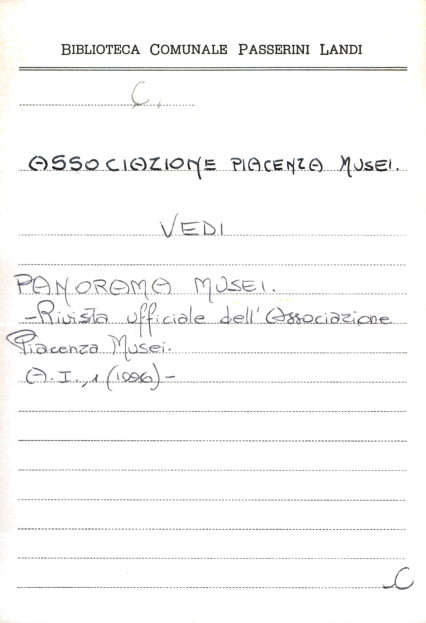 BIBLIOTECA COMUNALE PASSERINI LANDI
C.
ASSOCIAZIONE PIACENZA MUSEI.
VEDI
PANORAMA MUSEI.
-Rivista ufficiale dell'Associazione
Piacenza Musei.
A.I., 1 (1996)-
C